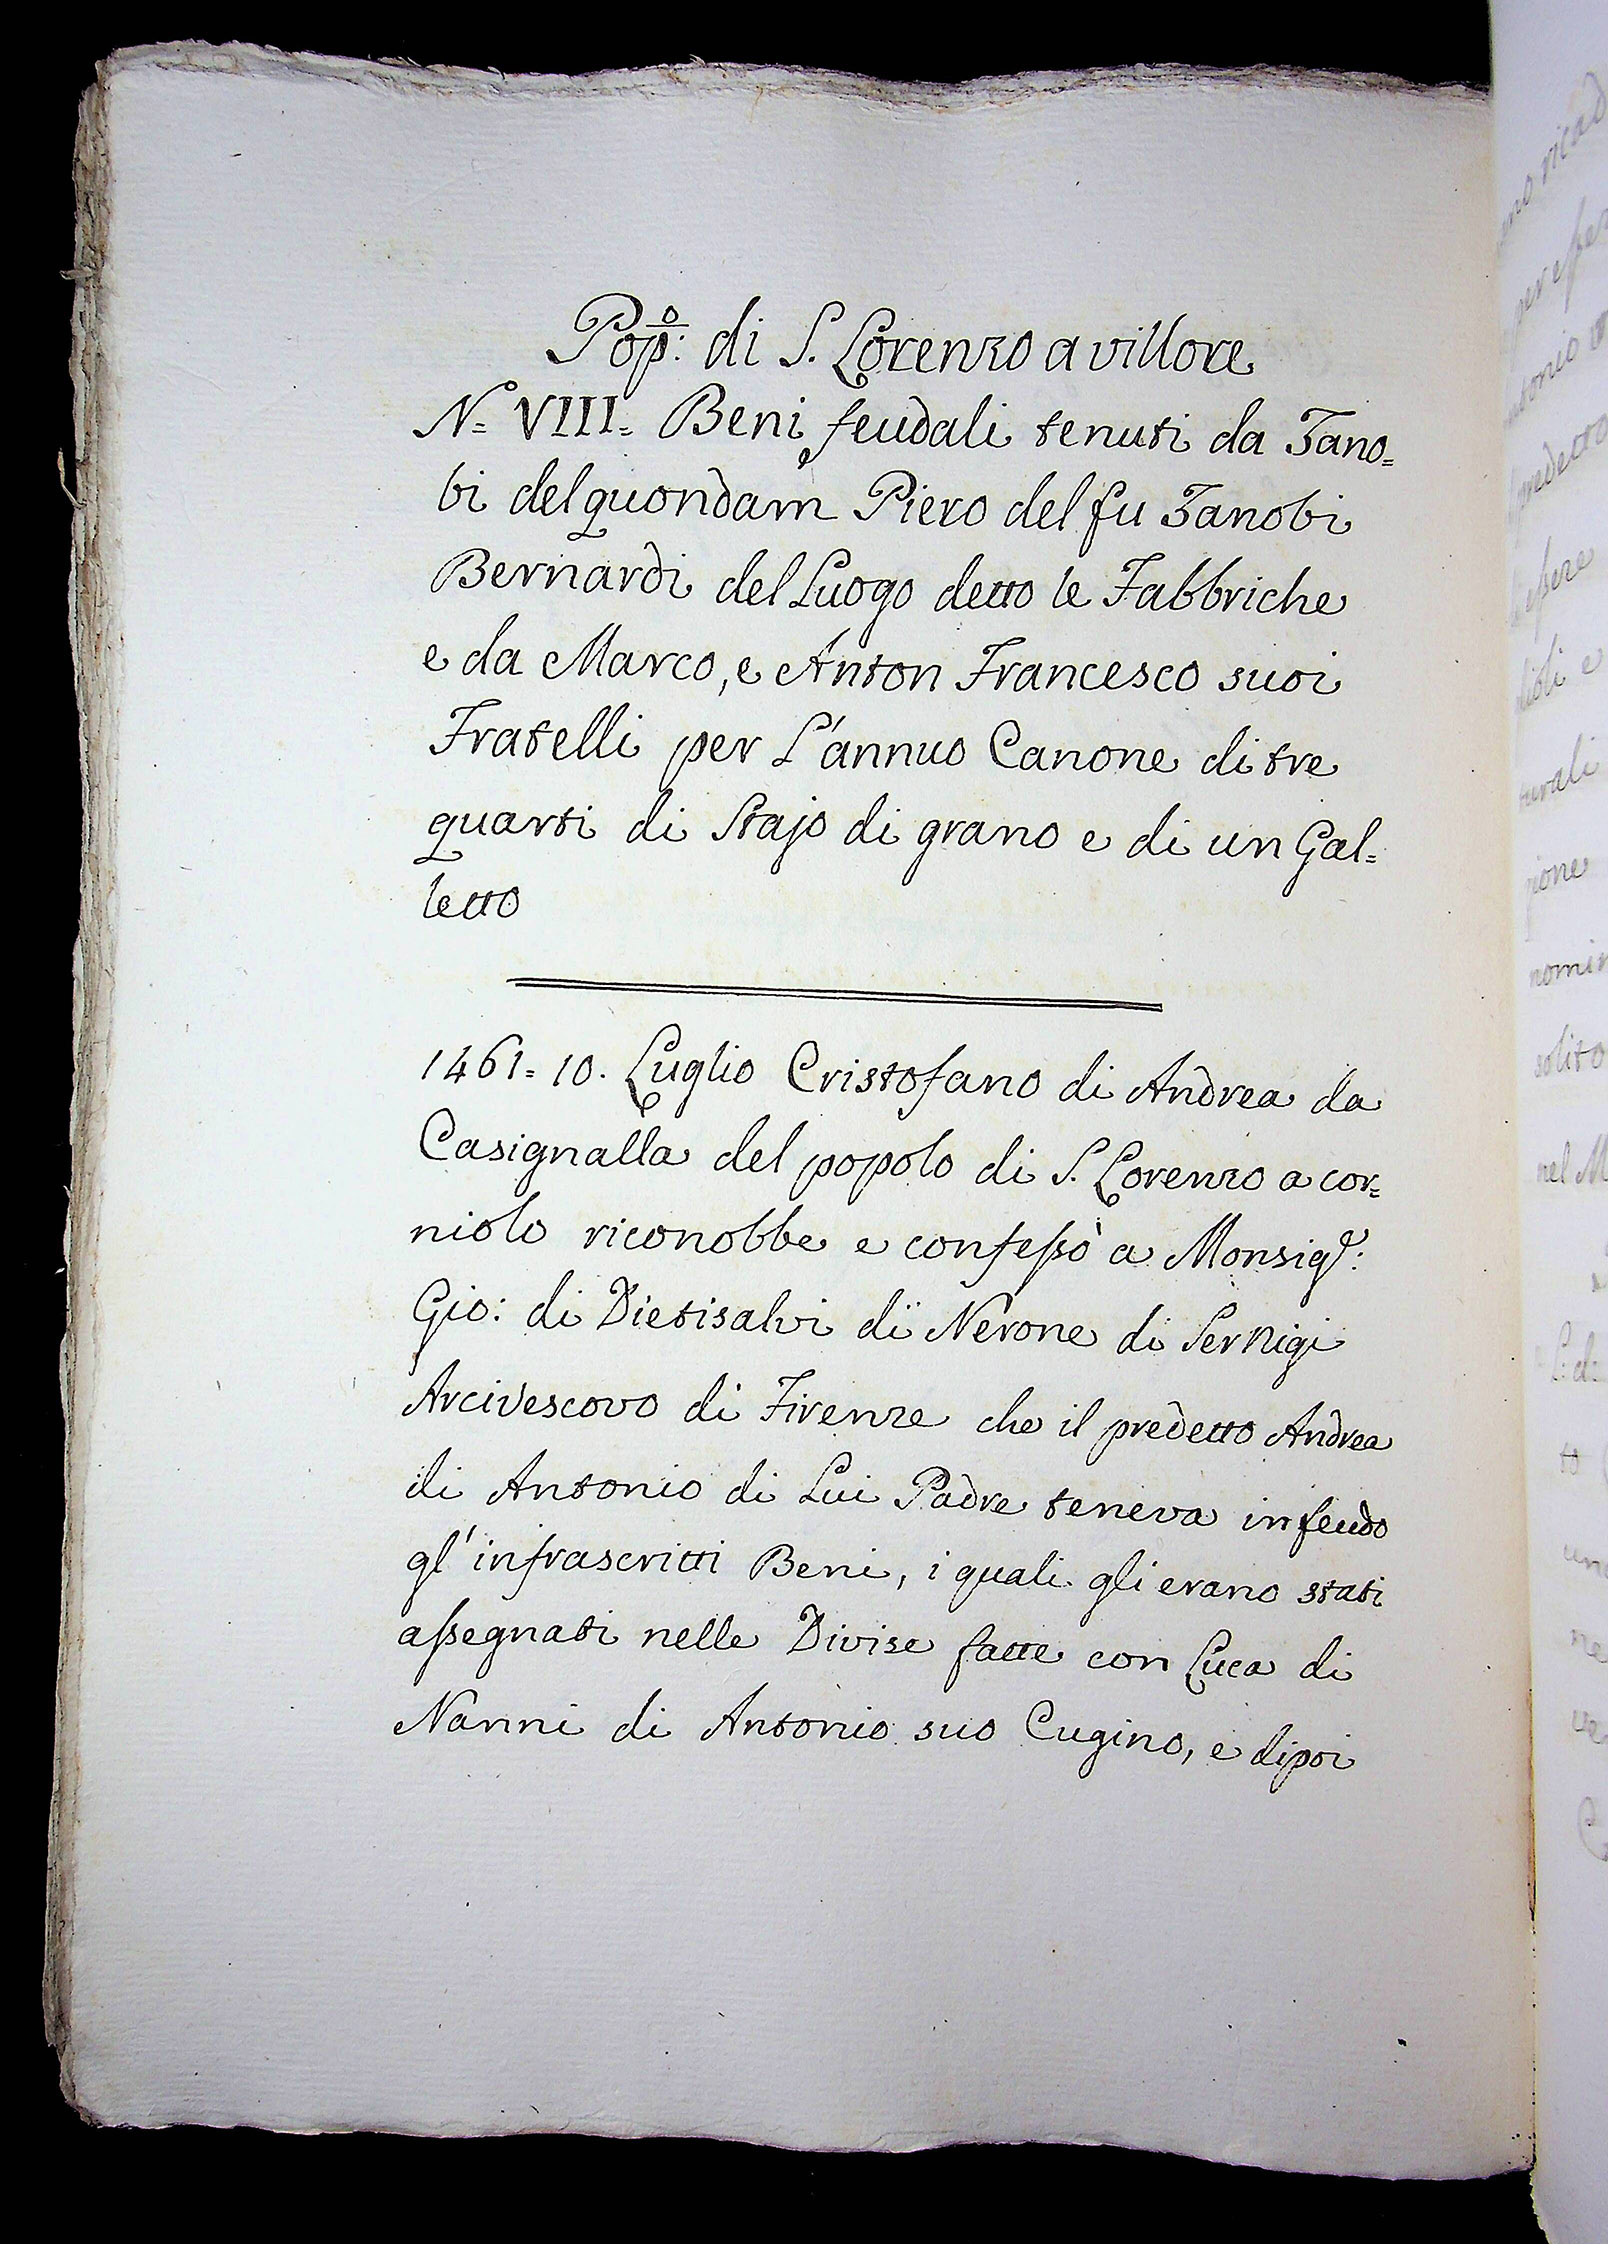 Pop.º: di S. Lorenzo a villore
N.º VIII = Beni feudali tenuti da Zano=
bi del quondam Piero del fu Zanobi
Bernardi del Luogo detto le Fabbriche
e da Marco, e Anton Francesco suoi
Fratelli per L'annuo Canone di tre
quarti di Stajo di grano e di un Gal=
letto
1461 = 10. Luglio Cristofano di Andrea da
Casignalla del popolo di S. Lorenzo a cor=
niolo riconobbe e confeſsò a Monsig.r:
Gio: di Dietisalvi di Nerone di Ser Nigi
Arcivescovo di Firenze che il predetto Andrea
di Antonio di Lui Padre teneva in feudo
gl' infrascritti Beni, i quali gli erano stati
aſsegnati nelle Divise fatte con Luca di
Nanni di Antonio suo Cugino, e dipoi